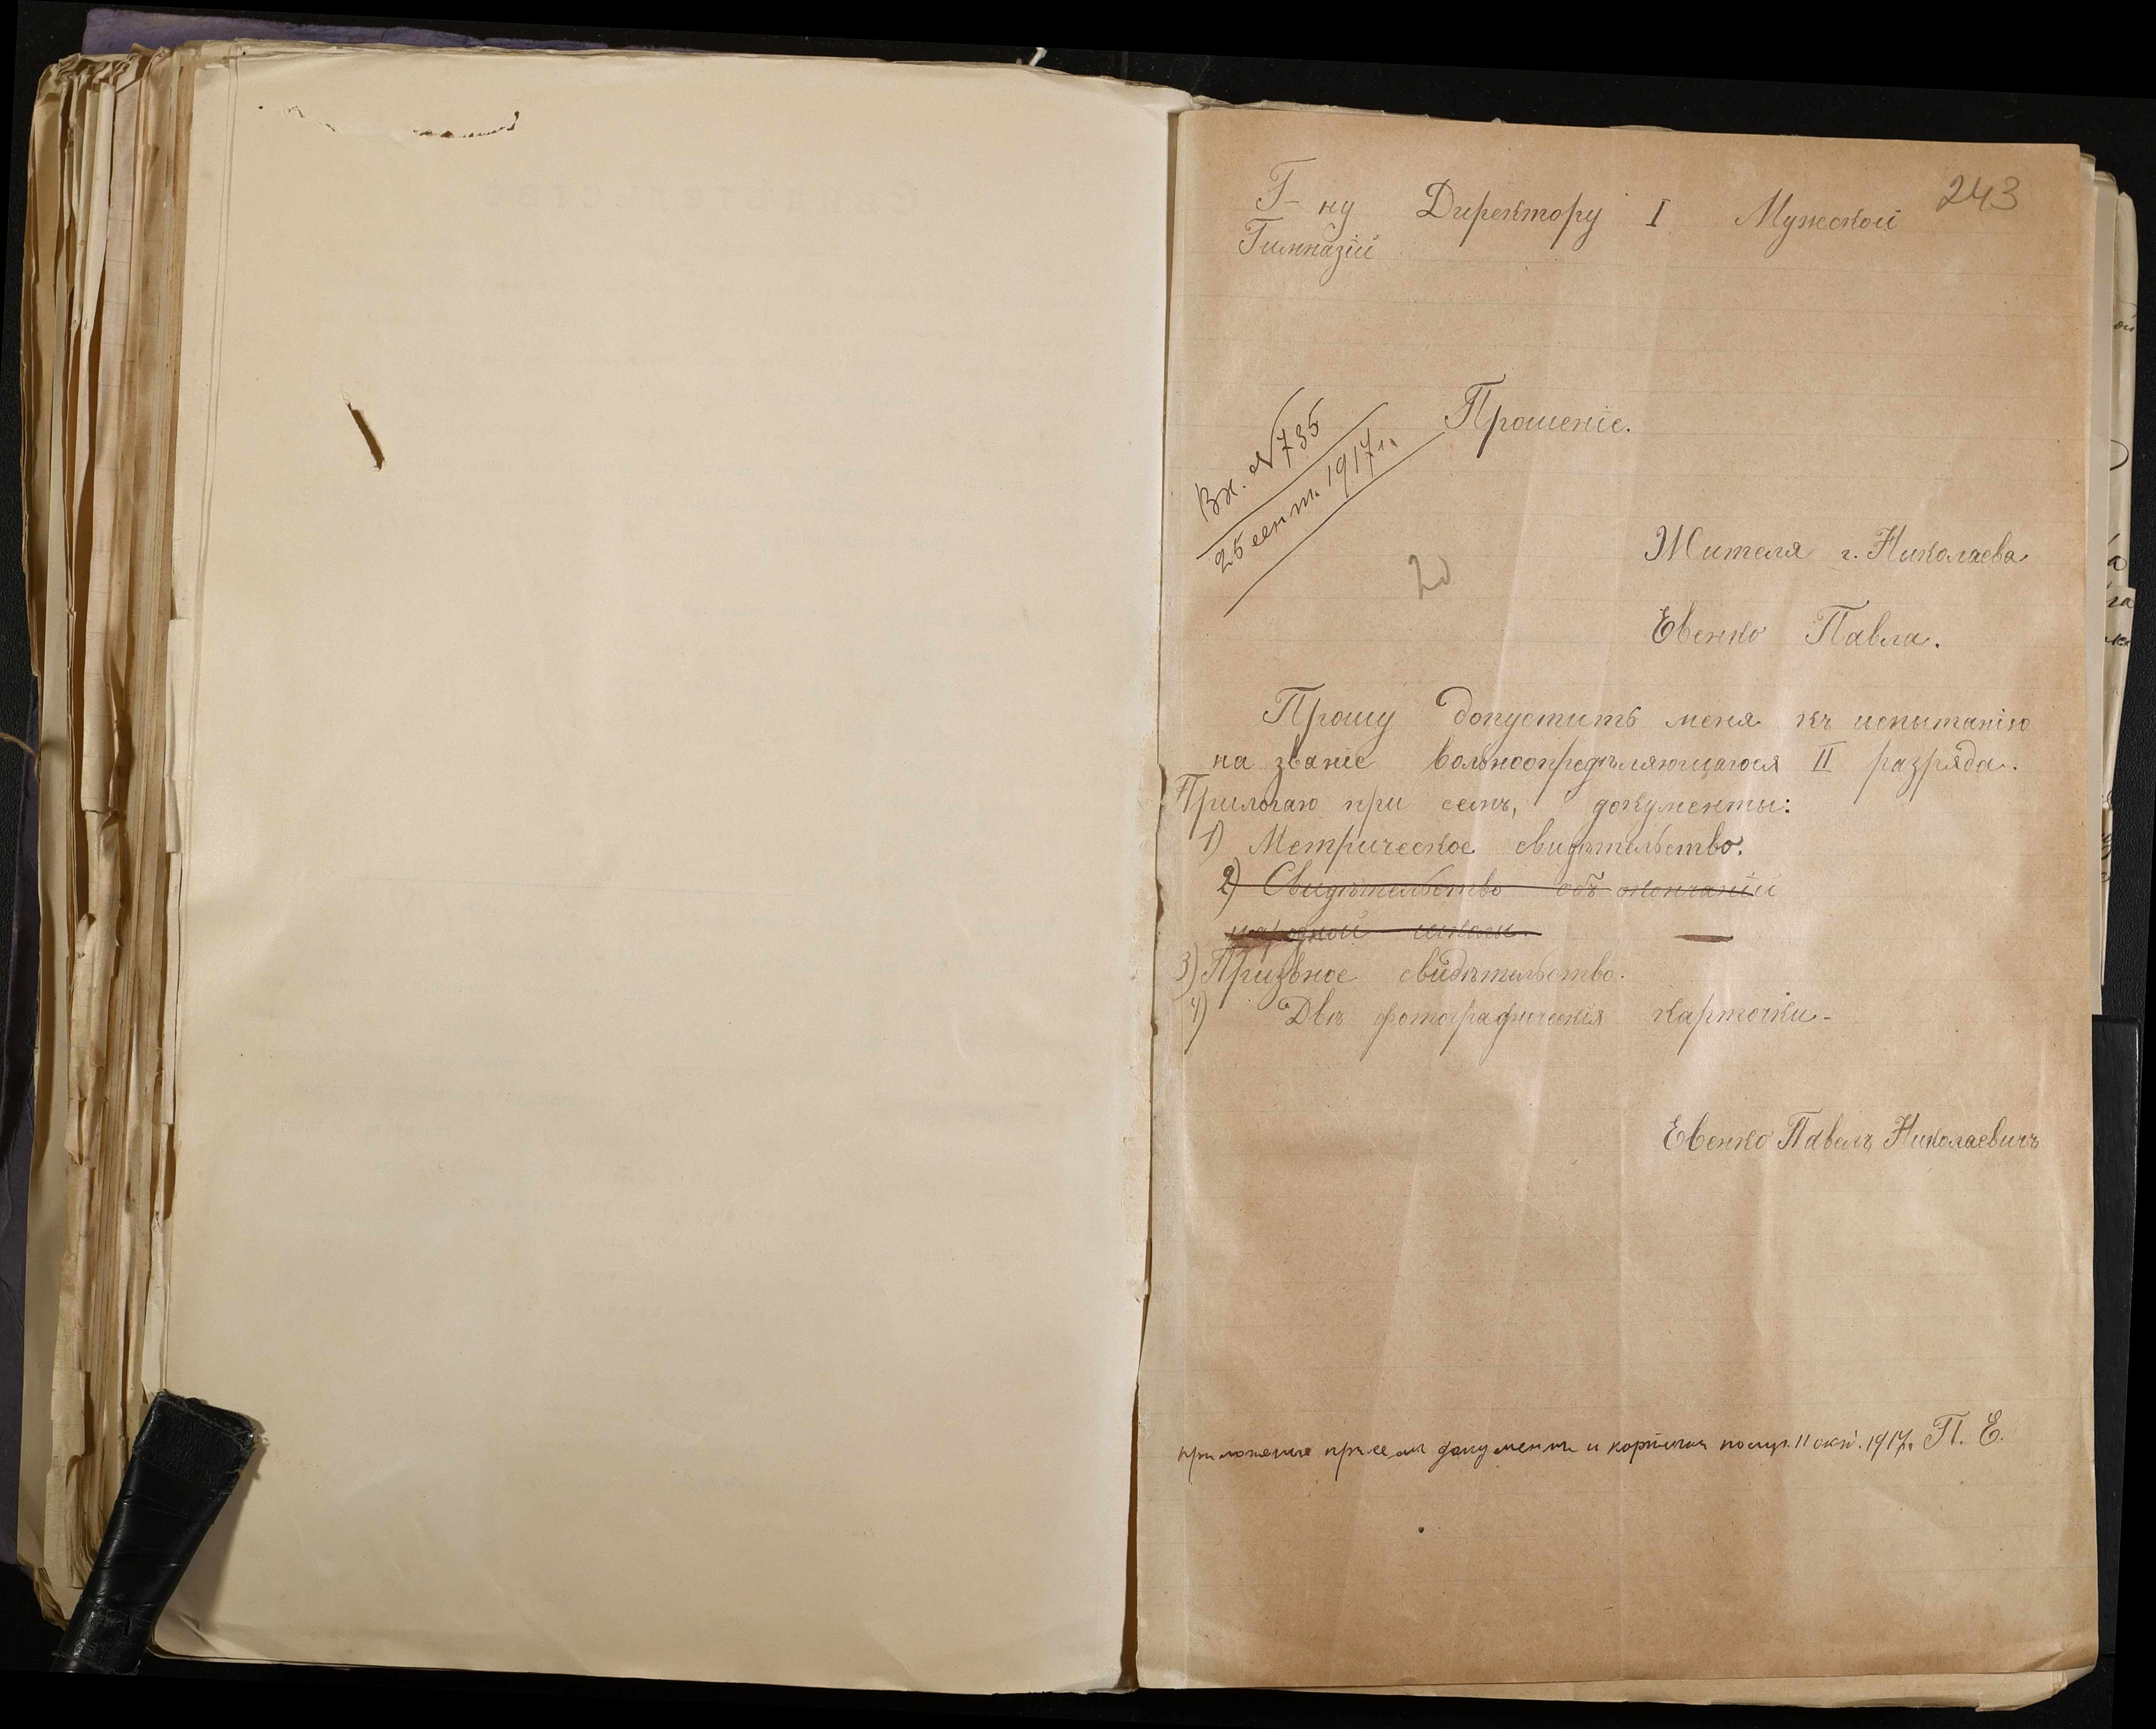 243
Г-ну Директору I Мужской
Гимназіи
Прошеніе.
Вх. №735
25 сент. 1917 г.
20
Жителя г. Николаева
Евенко Павла.
Прошу допустить меня къ испытанію
на званіе вольноопредѣляющагося II разряда.
Прилогаю при семъ, документы:
1) Метрическое свидѣтельство.
2) Свидѣтельство объ окончаніи
народной школы.
3) Призвное свидѣтельство.
4) Двѣ фотографическія карточки.
Евенко Павелъ Николаевичъ
приложенные при семъ документы и карточки получ. 11 окт. 1917 г. П. Е.